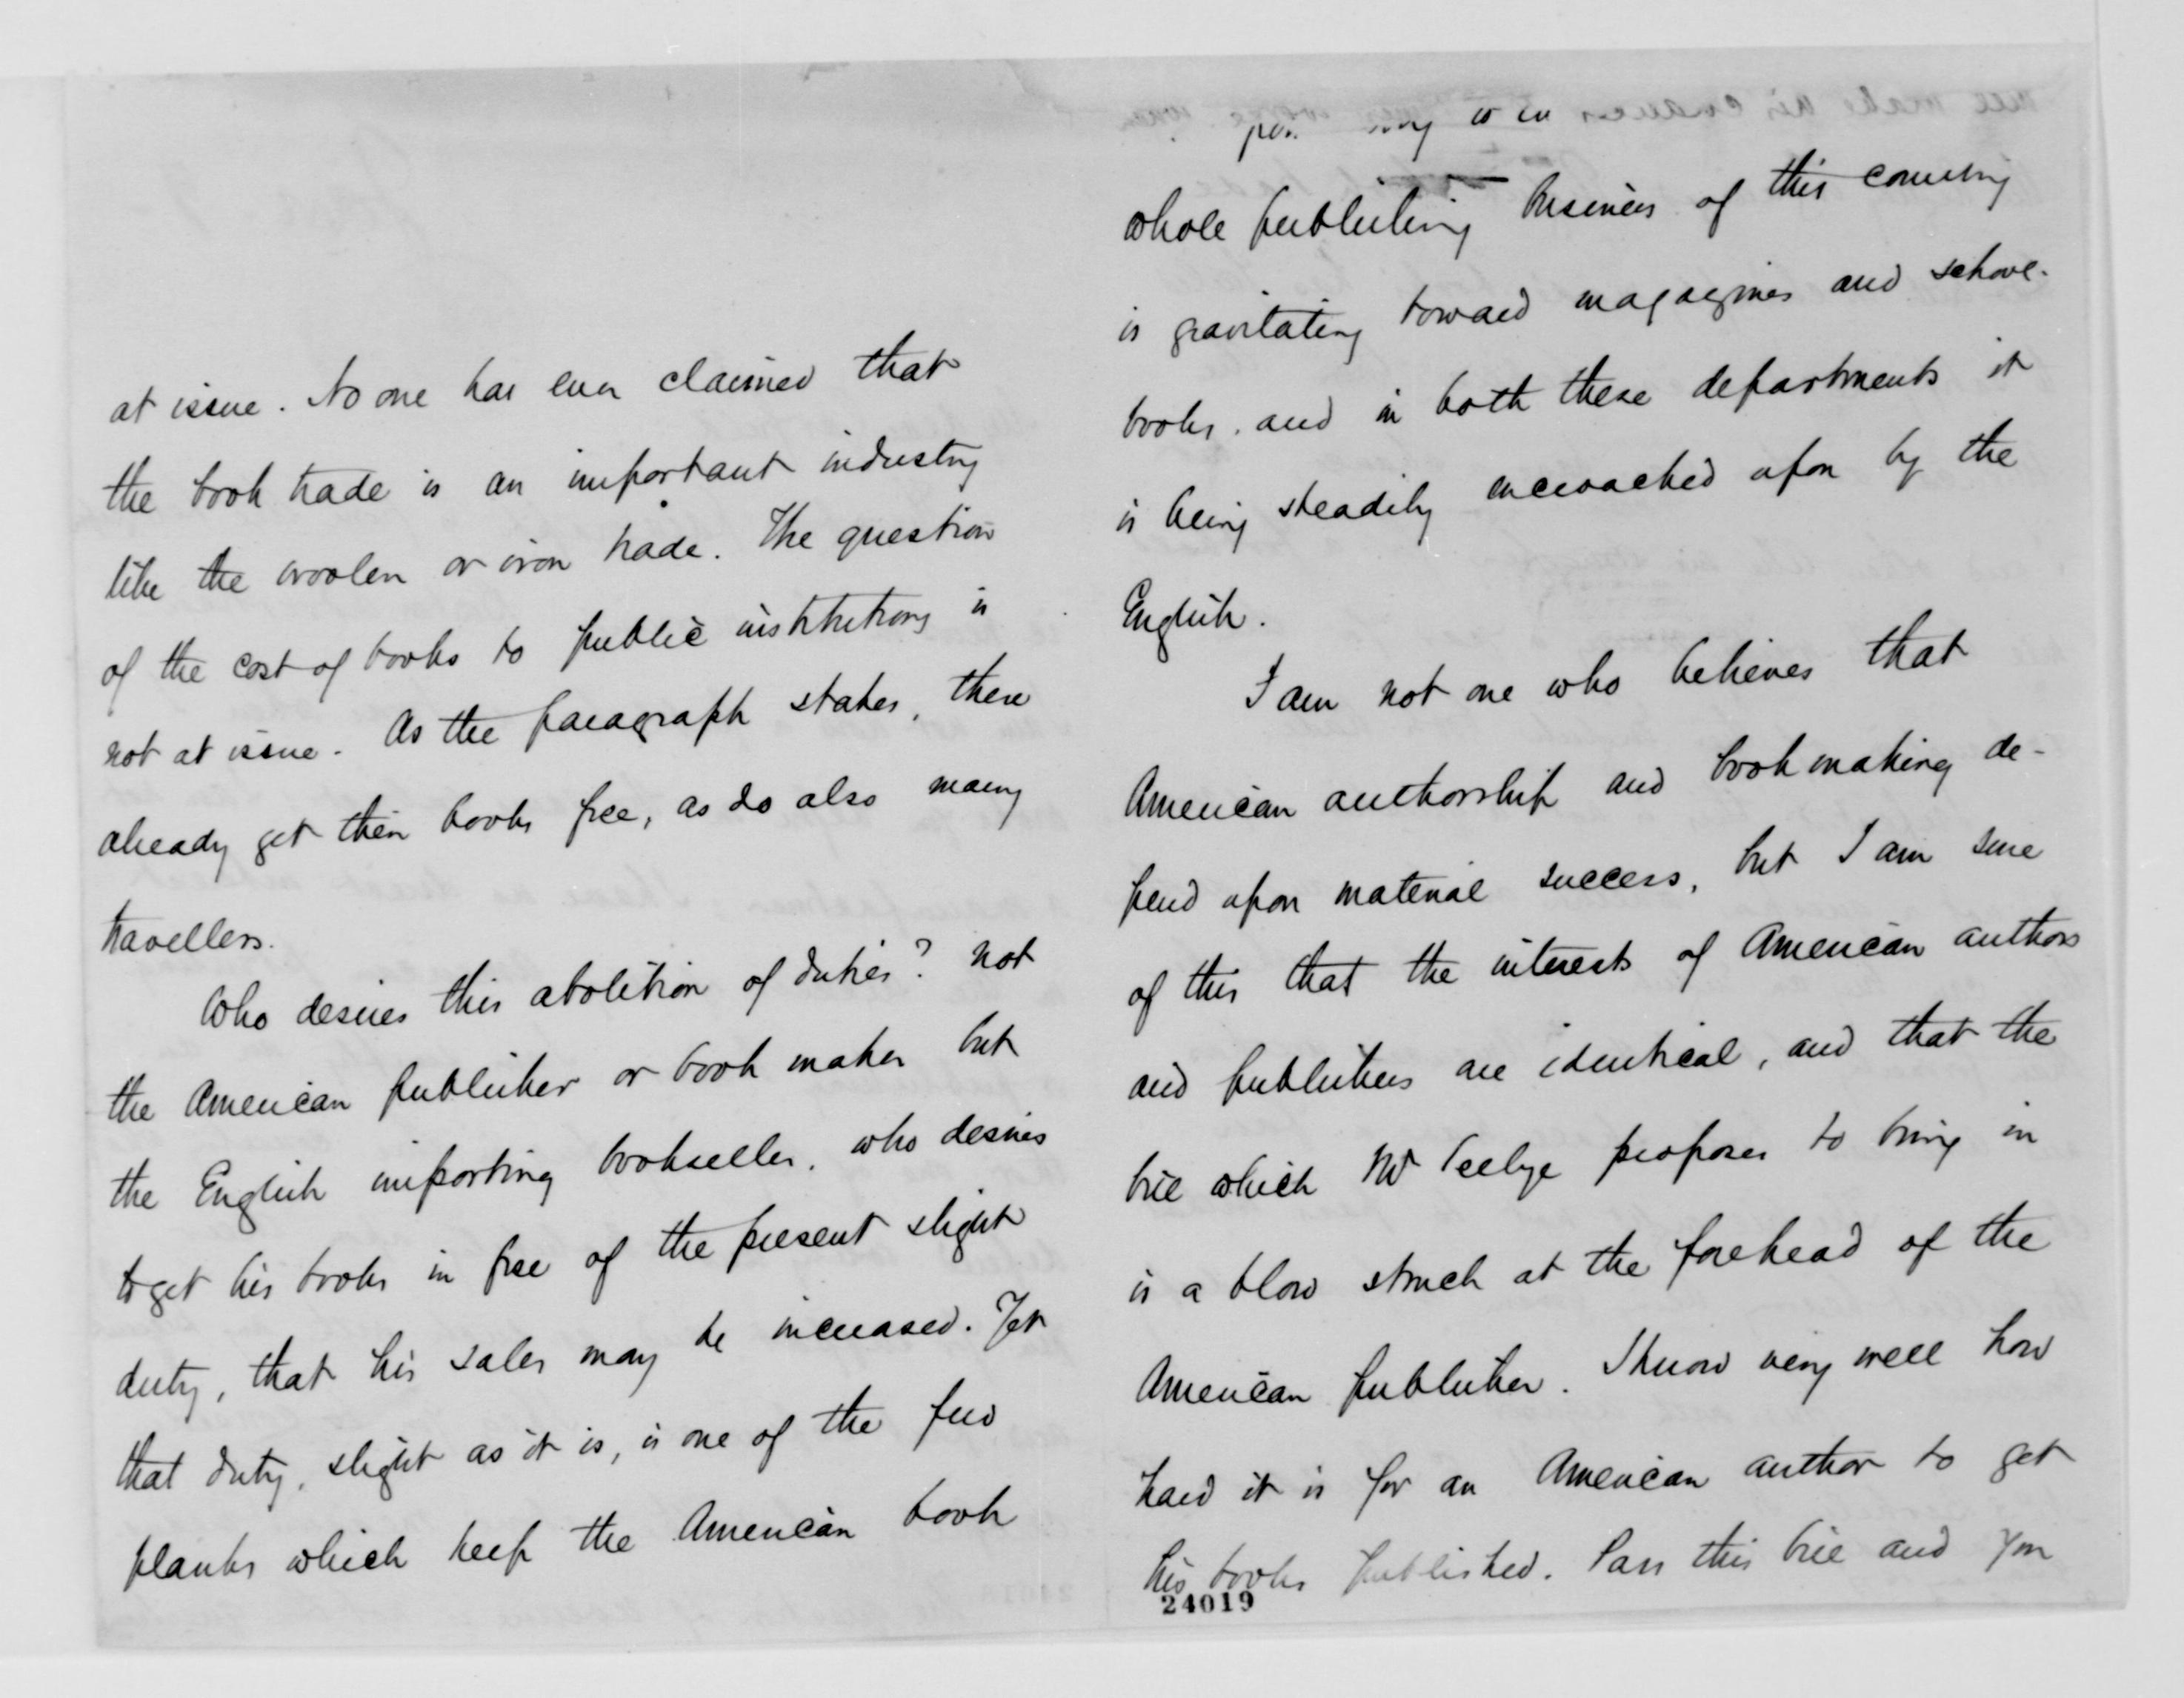 at issue. No one has ever claimed that
the book trade is an important industry
like the woolen or iron trade. The question
of the cost of books to public institutions is
not at issue. As the paragraph states, these
already get their books free, as do also many
travellers.
Who desires this abolition of duties? Not
the American publisher or book maker but
the English importing bookseller, who desires
to get his books in free of the present slight
duty, that his sales may be increased. Yet
that duty, slight as it is, is one of the few
planks which keep the American book
whole publishing business of this country
is gravitating toward magazines and school-
books, and in both these departments it
is being steadily encroached upon by the
English.
I am not one who believes that
American authorship and bookmaking de-
pend upon material success, but I am sure
of this that the interests of American authors
and publishers are identical, and that the
bill which Mr Seelye proposes to bring in
is a blow struck at the forehead of the
American publisher. I know very well how
hard it is for an American author to get
his books published. Pass this bill and you
24019